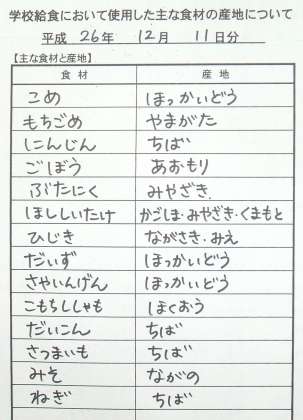 学校給食において使用した主な食材の産地について
平成 26年 12月 11日分
【主な食材と産地】
食材 産地
こめ ほっかいどう
もちごめ やまがた
にんじん ちば
ごぼう あおもり
ぶたにく みやざき
ほししいたけ かごしま・みやざき・くまもと
ひじき ながさき・みえ
だいず ほっかいどう
さやいんげん ほっかいどう
こもちししゃも ほくおう
だいこん ちば
さつまいも ちば
みそ ながの
ねぎ ちば